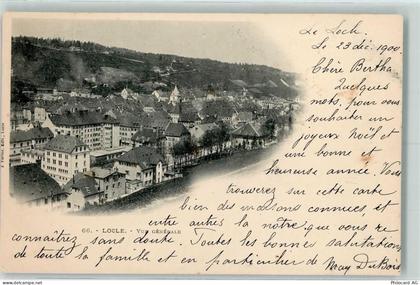 Le Locle
le 23 déc. 1900.
Chère Bertha
Quelques
mots, pour vous
souhaiter un
joyeux Noël et
une bonne et
heureuse année. Vous
trouverez sur cette carte
bien des maisons connues, et
entre autres la notre, que vous re-
connaîtrez sans doute. Toutes les bonnes salutations
de toute la famille et en particulier de Nancy DuBois
66. - LOCLE. - VUE GÉNÉRALE
www.ansichtskarten-center.de